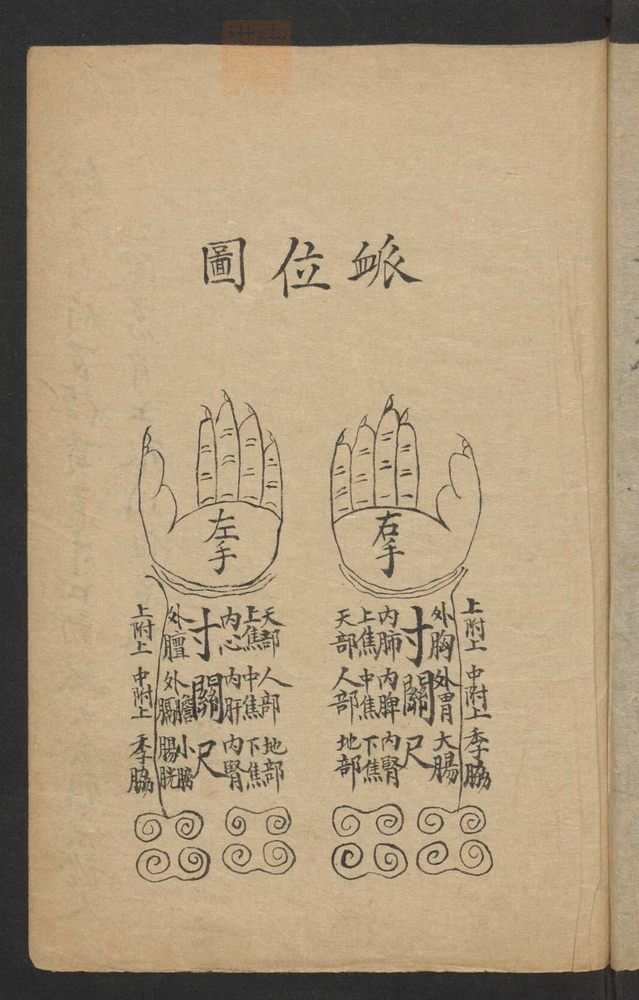 衇位圖
右手
左手
上附上 中附上 季脇
外胸 外胃 大腸
寸關尺
内肺 内脾 内腎
上焦 中焦 下焦
天部 人部 地部
天部 人部 地部
上焦 中焦 下焦
内心 内肝 内腎
寸關尺
外膻 外膽膈 小腸膀胱
上附上 中附上 季脇